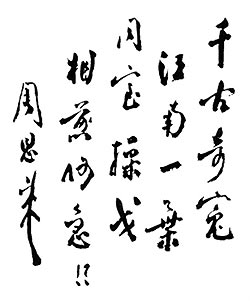 千古奇冤
江南一葉
同室操戈
相煎何急!?
周恩来